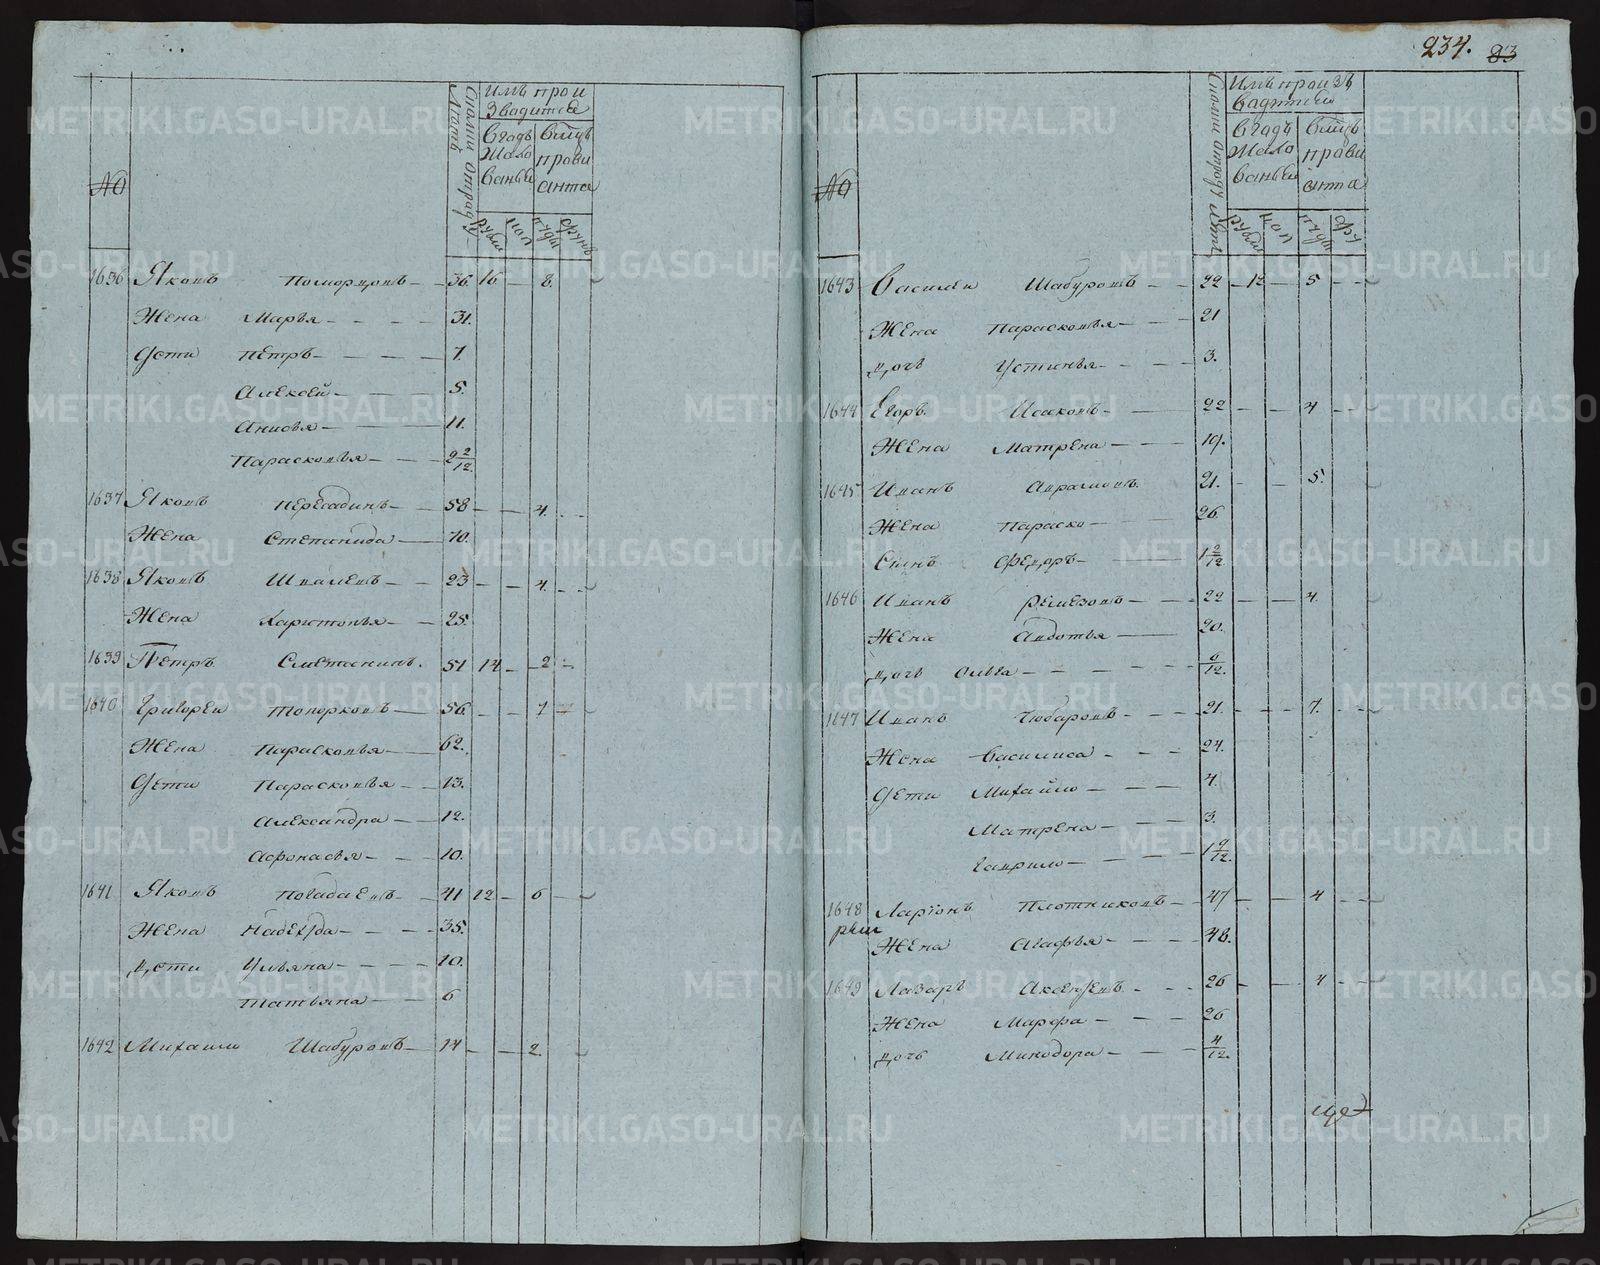 234. 83
№
Сколко отроду летъ
Имъ прои
звадитца
Вгодъ
жало
ванья
Вмцъ
прови
анта
рубли
коп
пуды
фунъ
1636 Яковъ Поморцовъ 36. 16 8.
Жена Марья 31.
Дети Петръ 7.
Алексей 5.
Анисья 11.
Парасковья 2 2/12
1637 Яковъ Пересадинъ 58 4.
Жена Степанида 70.
1638 Яковъ Шмалевъ 23 4.
Жена Харитонья 25.
1639 Петръ Сметанинъ. 51 14 2
1640 Григорей Топорковъ 56. 7
Жена Парасковья 62.
Дети Парасковья 13.
Александра 12.
Афонасья 10.
1641 Яковъ Погадаевъ 41 12 6
Жена Надежда 35.
Дети Ульяна 10.
Татьяна 6
1642 Михаило Шабуровъ 14 2.
№
Сколко отроду летъ
Имъ произъ
вадитца
Вгодъ
жало
ванья
Вмцъ
прови
анта
рубли
коп
пуды
фу
1643 Василеи Шабуровъ 22 12 5
Жена Парасковья 21
Дочь Устинья 3.
1644 Егоръ Исаковъ 22 4
Жена Матрена 19.
1645 Иванъ Аврамовъ. 21. 5.
Жена Параско 26.
Сынъ Федоръ 1 2/12
1646 Иванъ Ремезовъ 22 4.
Жена Авдотья 20.
Дочь Ольга 6/12.
1647 Иванъ Чюбаровъ 21. 7.
Жена Василиса 24.
Дети Михайло 4.
Матрена 3.
Гаврило 1 9/12.
1648 Ларионъ Плотниковъ 47 4
Жена Агафья 48.
1649 Лазаръ Аксеновъ 26 4
Жена Марфа 26
Дочь Минодора 4/12.
METRIKI.GASO-URAL.RU